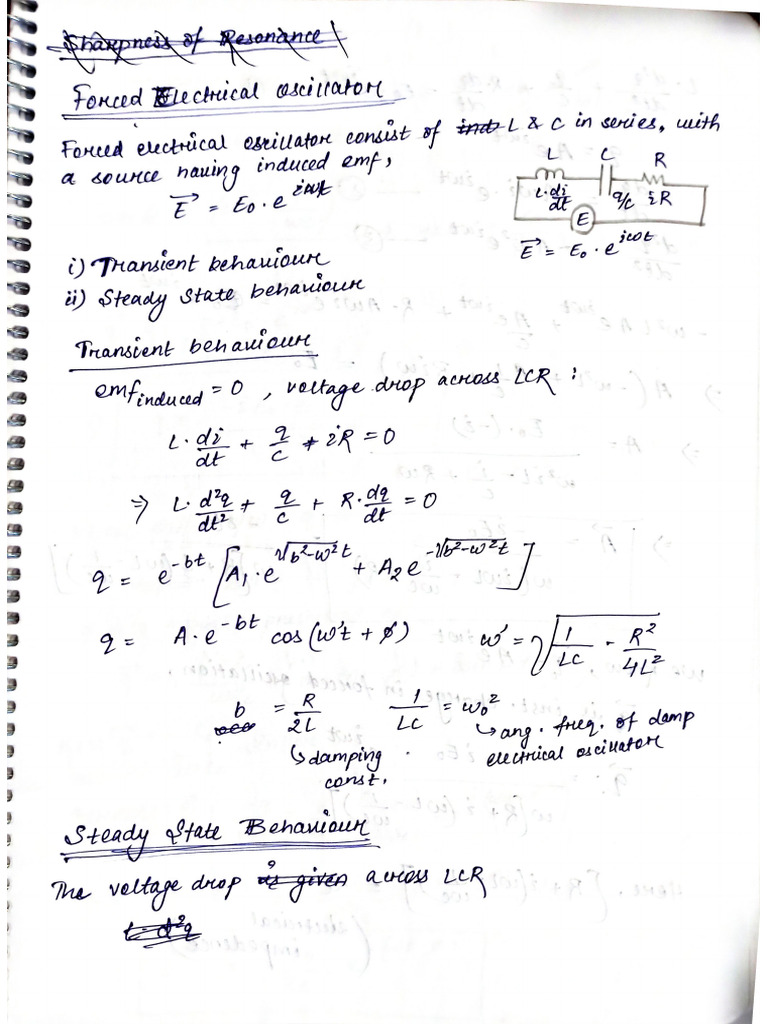 Sharpness of Resonance
Forced Electrical oscillator
Forced electrical oscillator consist of ind L & C in series, with
a source having induced emf,
E⃗ = E₀ · e^{iωt}
L C R
L·di/dt q/c iR
E
E⃗ = E₀ · e^{jωt}
i) Transient behaviour
ii) Steady State behaviour
Transient behaviour
emf induced = 0 , voltage drop across LCR :
L · di/dt + q/c + iR = 0
⇒ L · d²q/dt² + q/c + R · dq/dt = 0
q = e^{-bt} [A₁ · e^{√(b²-ω²)t} + A₂ e^{-√(b²-ω²t)}]
q = A · e^{-bt} cos (ω't + φ) ω' = √(1/LC - R²/4L²)
b = R/2L 1/LC = ω₀²
↳ damping const. ↳ ang. freq. of damp
electrical oscillator
Steady State Behaviour
The voltage drop is given across LCR
L · d²q